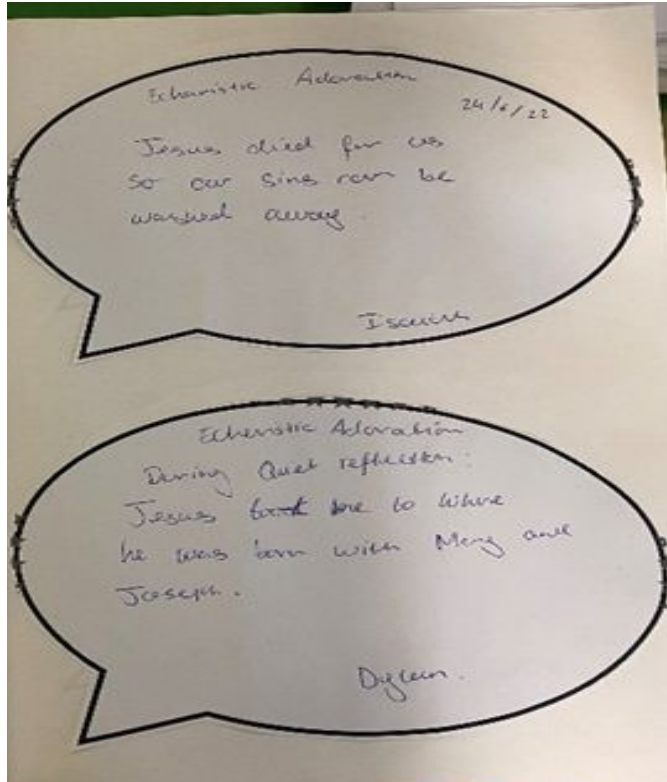 Echaristic Adoration
24/6/22
Jesus died for us
so our sins can be
washed away.
Echeristic Adoration
During Quet reflection:
Jesus took me to where
he was born with Mary and
Joseph.
Dylan.